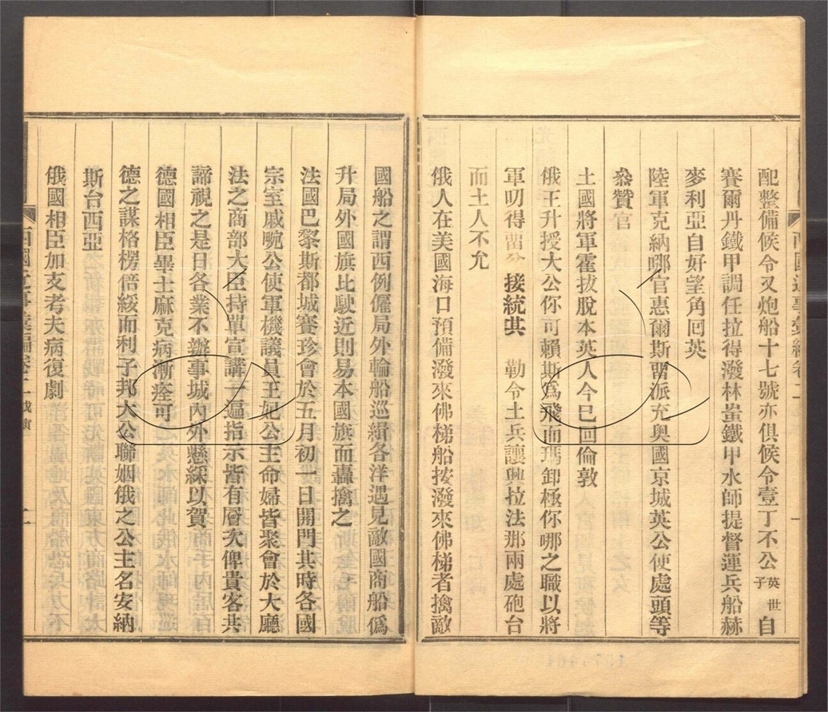 配整備候令又炮船十七號亦俱候令壹丁不公英世子自
賽爾丹鐵甲調任拉得潑林蚩鐵甲水師提督運兵船赫
麥利亞自好望角回英
陸軍克納哪官惠爾斯畱派充奥國京城英公使處頭等
叅贊官
土國將軍霍拔脫本英人今已回倫敦
俄王升授大公你可賴斯爲飛而瑪卸極你哪之職以將
軍叨得畱分接統其 勒令土兵讓與拉法那兩處砲台
而土人不允
俄人在美國海口預備潑來佛梯船按潑來佛梯者擒敵
國船之謂西例僱局外輪船巡緝各洋遇見敵國商船爲
升局外國旗比駛近則易本國旗而轟擒之
法國巴黎斯都城賽珍會於五月初一日開門其時各國
宗室戚畹公使軍機議員王妃公主命婦皆聚會於大廳
法之商部大臣持單宣講一遍指示皆有層次俾貴客共
諦視之是日各業不辦事城內外懸綵以賀
德國相臣畢士麻克病漸痊可
德之謀格楞倍緩而利子邦大公聯姻俄之公主名安納
斯台西亞
俄國相臣加支考夫病復劇